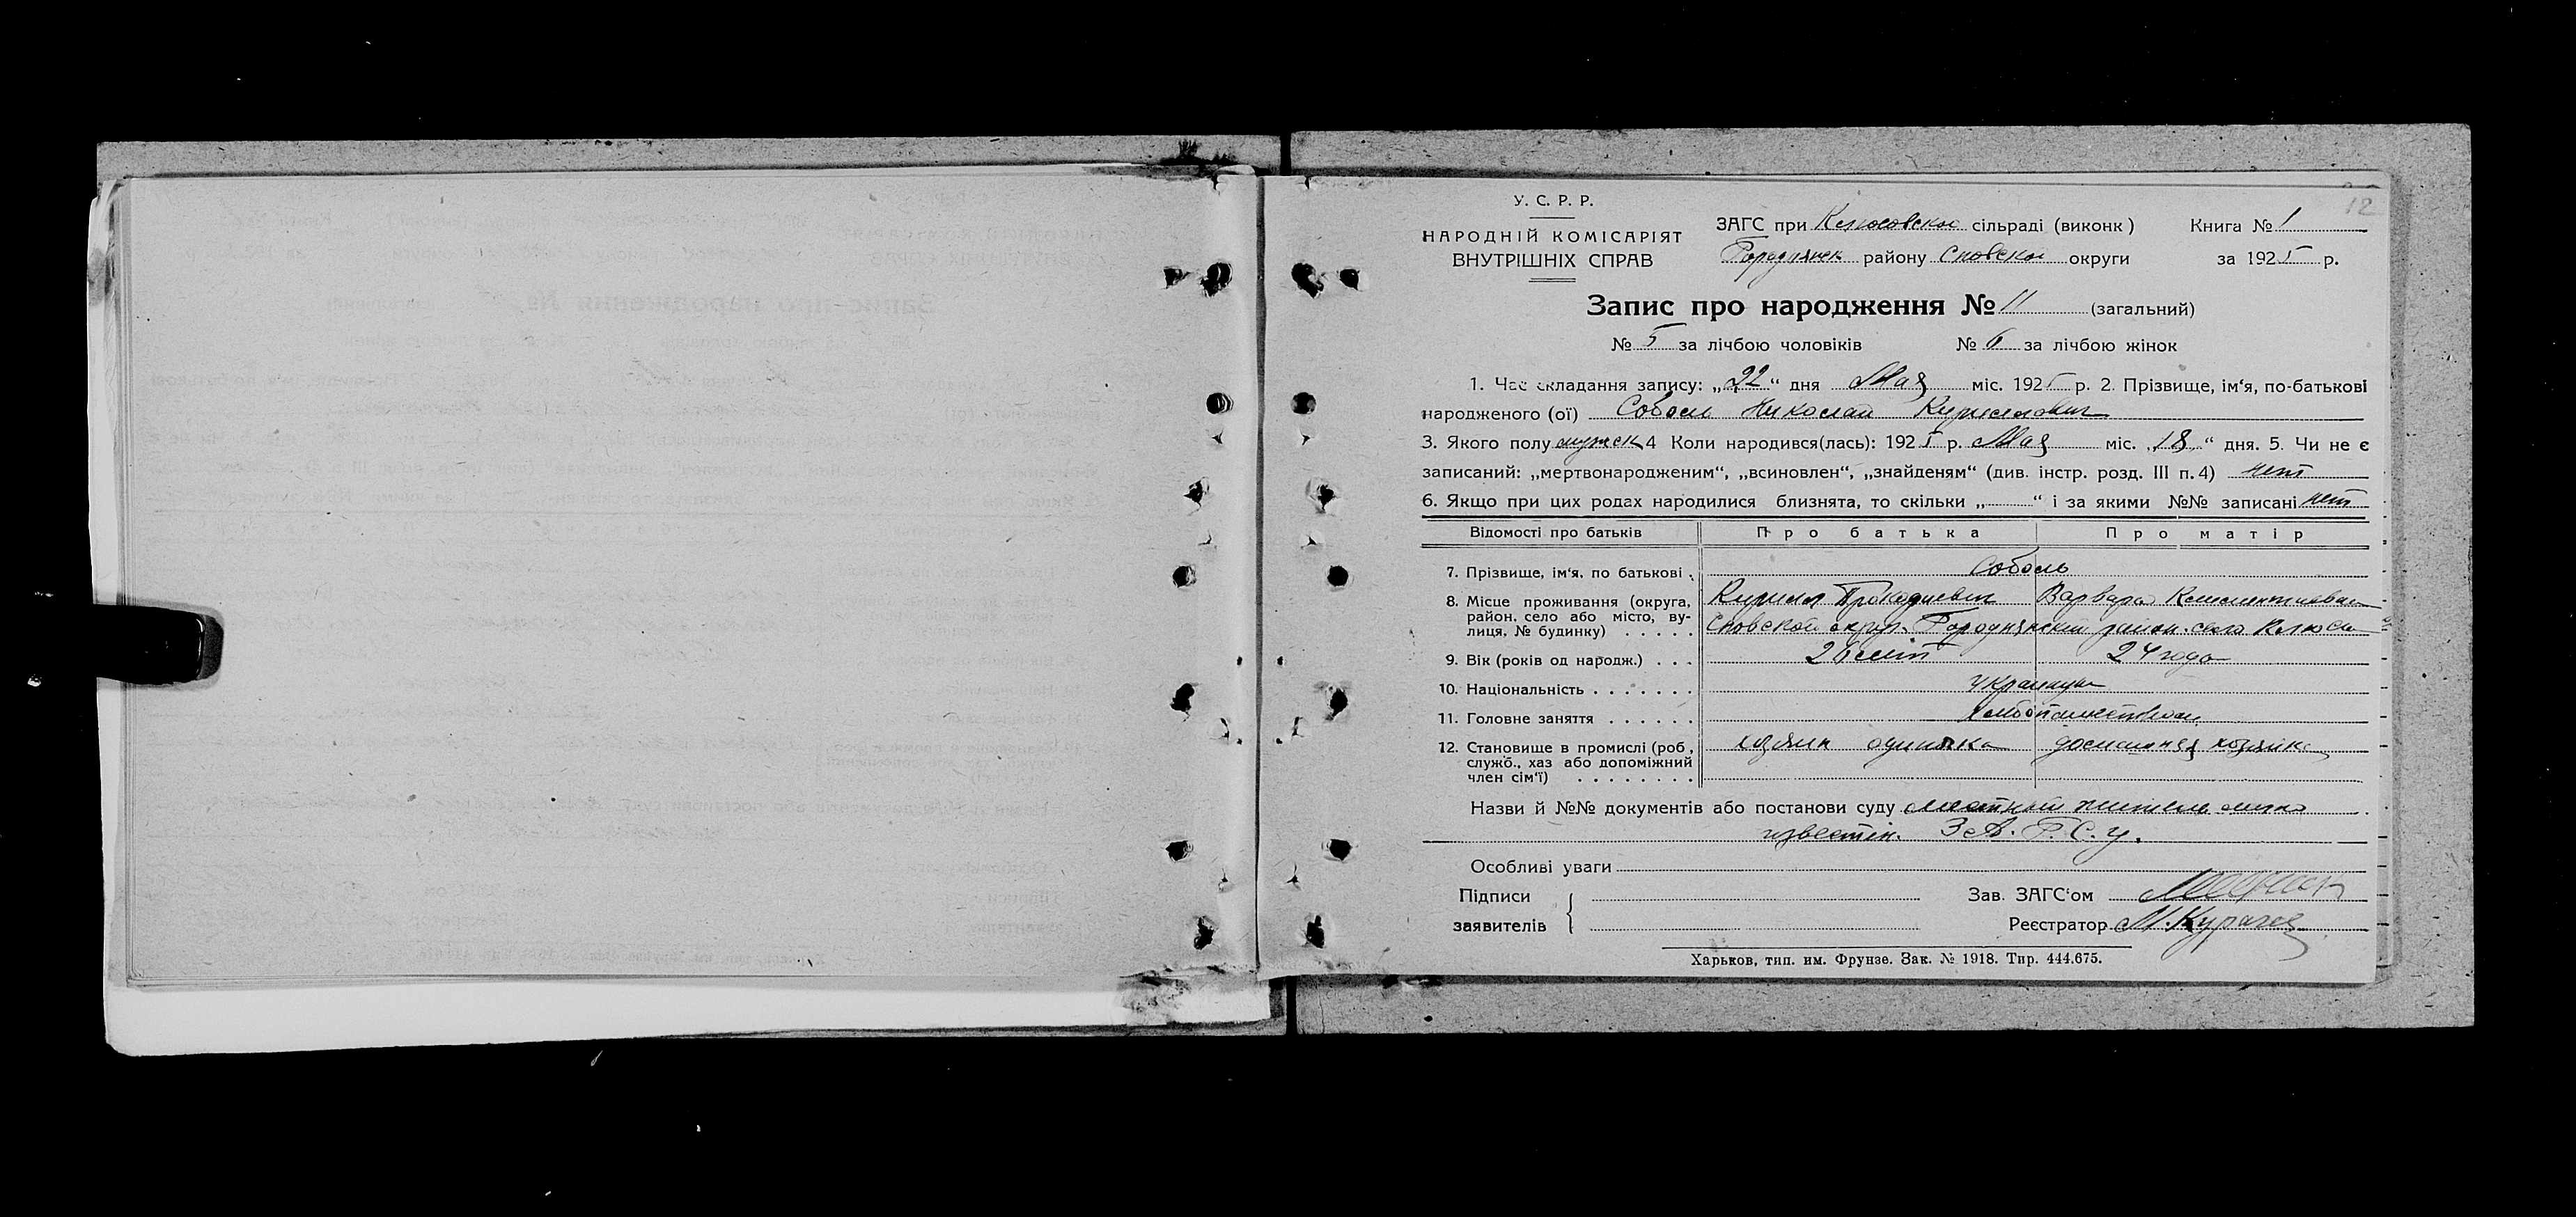 12
У. С. Р. Р.
НАРОДНІЙ КОМІСАРІЯТ
ВНУТРІШНІХ СПРАВ
ЗАГС при Клюсовской сільраді (виконк) Книга № 1
Городнянск району Сновской округи за 1925 р.
Запис про народження № 11 (загальний)
№ 5 за лічбою чоловіків № 6 за лічбою жінок
1. Час складання запису: „22“ дня Мая міс. 1925 р. 2. Прізвище, ім‘я, по-батькові
народженого (ої) Соболь Николай Кириллович
3. Якого полу мужск 4 Коли народився(лась): 1925 р. Мая міс. „18“ дня. 5. Чи не є
записаний: „мертвонародженим“, „всиновлен“, „знайденям“ (див. інстр. розд. III п. 4) нет
6. Якщо при цих родах народилися близнята, то скільки „ “ і за якими №№ записані нет
Відомості про батьків Про батька Про матір
7. Прізвище, ім‘я, по батькові . Соболь
Кирилл Варвара
8. Місце проживання (округа, район, село або місто, ву-
лиця, № будинку) . . . . . Сновской округ. Городнянский район. село Клюсы
9. Вік (років од народж.) . . . 26 лет 24 года
10. Національність . . . . . . . Украинцы
11. Головне заняття . . . . . . Хлебопашество
12. Становище в промислі (роб, хозяин одиночка домашняя хозяйка
служб., хаз або допоміжний
член сім‘ї) . . . . . . . .
Назви й №№ документів або постанови суду местный житель лично
известен. З.А.Г.С.у.
Особливі уваги
Підписи
заявителів
Зав. ЗАГС‘ом
Реєстратор М.
Харьков, тип. им. Фрунзе. Зак. № 1918. Тир. 444.675.